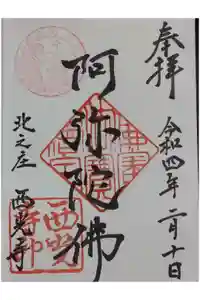 奉拝
令和四年二月十日
阿弥陀佛
北之庄
西光寺